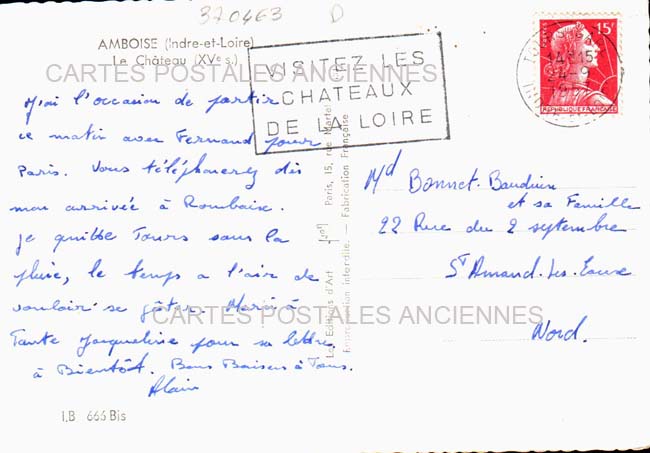 370463 D
AMBOISE (Indre-et-Loire)
Le Château (XVe s.)
CARTES POSTALES ANCIENNES
VISITEZ LES
CHATEAUX
DE LA LOIRE
15F
POSTES
14H15
24-9
REPUBLIQUE FRANÇAISE
J'ai l'occasion de partir
ce matin avec Fernand pour
Paris. Vous téléphonerez dès
mon arrivée à Roubaix.
Je quitte Tours sous la
pluie, le temps a l'air de
vouloir se gâter. Merci à
Tante Jacqueline pour sa lettre.
à Bientôt. Bons Baisers à Tous.
Alain
I.B 666 Bis
Les Editions d'Art Paris, 15, rue Martel
interdite. — Fabrication Française
Md Bonnet-Bauduin
et sa Famille
22 Rue du 2 septembre
St Amand-les-Eaux
Nord.
CARTES POSTALES ANCIENNES